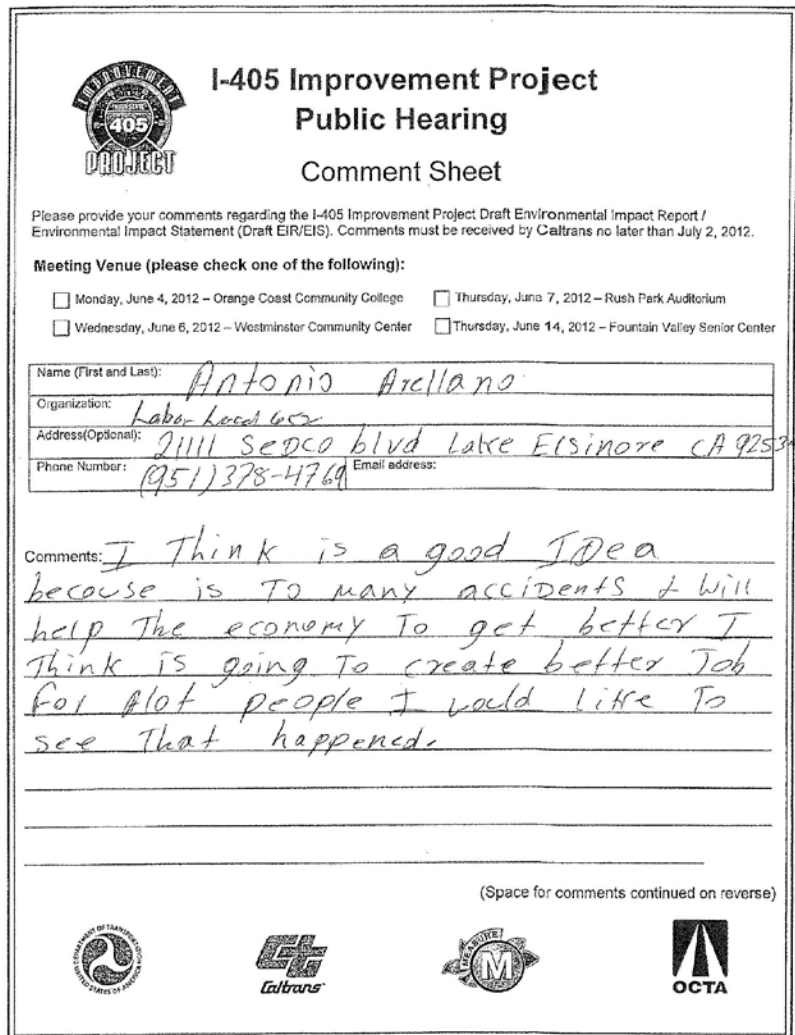 IMPROVEMENT
405
PROJECT
I-405 Improvement Project
Public Hearing
Comment Sheet
Please provide your comments regarding the I-405 Improvement Project Draft Environmental Impact Report /
Environmental Impact Statement (Draft EIR/EIS). Comments must be received by Caltrans no later than July 2, 2012.
Meeting Venue (please check one of the following):
Monday, June 4, 2012 – Orange Coast Community College
Thursday, June 7, 2012 – Rush Park Auditorium
Wednesday, June 6, 2012 – Westminster Community Center
Thursday, June 14, 2012 – Fountain Valley Senior Center
Name (First and Last): Antonio Arellano
Organization: Labor Local 652
Address(Optional): 21111 Sedco blvd Lake Elsinore CA 9253
Phone Number: (951) 378-4769 Email address:
Comments: I Think is a good IDea
becouse is To many acciDents & Will
help The economy To get better I
Think is going To create better Job
For Alot people I would like To
see That happened.
(Space for comments continued on reverse)
DEPARTMENT OF TRANSPORTATION
UNITED STATES OF AMERICA
Caltrans
MEASURE
M
OCTA